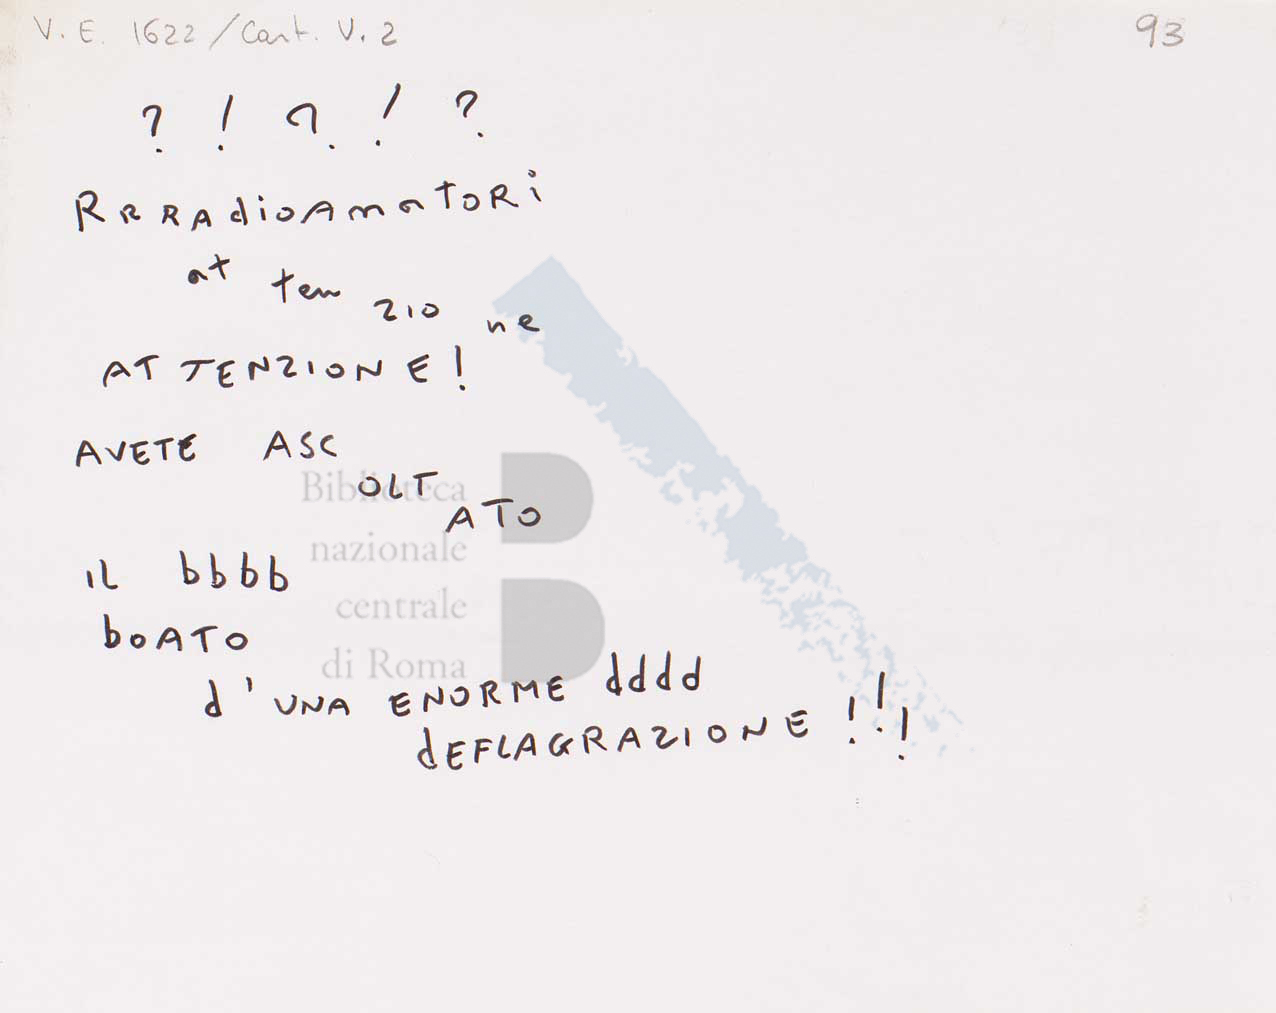 V. E. 1622 / Cart. V. 2
93
? ! ? ! ?
RRRAdioAmatoRi
at ten zio ne
ATTENZIONE!
AVETE ASC
OLT
ATO
iL bbbb
boATO
d'UNA ENORME dddd
dEFLAGRAZIONE !!!
Biblioteca
nazionale
centrale
di Roma